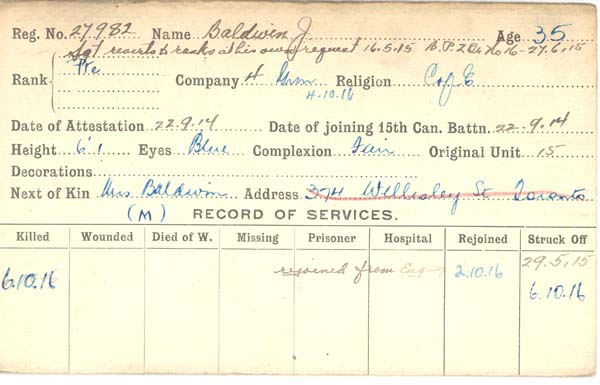 Reg. No. 27982 Name Baldwin J. Age 35
Sgt reverts to ranks at his own request 16.5.15 R.P.2 Or No 16-27.6.15
Rank Pte Company 4 Religion C of E
4.10.16
Date of Attestation 22.9.14 Date of joining 15th Can. Battn. 22.9.14
Height 6'1 Eyes Blue Complexion Fair Original Unit 15
Decorations
Next of Kin Mrs Baldwin Address 374 Wellesley St Toronto
(M) RECORD OF SERVICES.
Killed Wounded Died of W. Missing Prisoner Hospital Rejoined Struck Off
rejoined from Eng 2.10.16 29.5.15
6.10.16 6.10.16